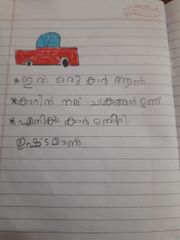 *ഇത് ഒരു കാർ ആണ്
*കാറിന് നാല് ചക്രങ്ങൾ ഉണ്ട്
*എനിക്ക് കാർ ഒത്തിരി
ഇഷ്ടമാണ്